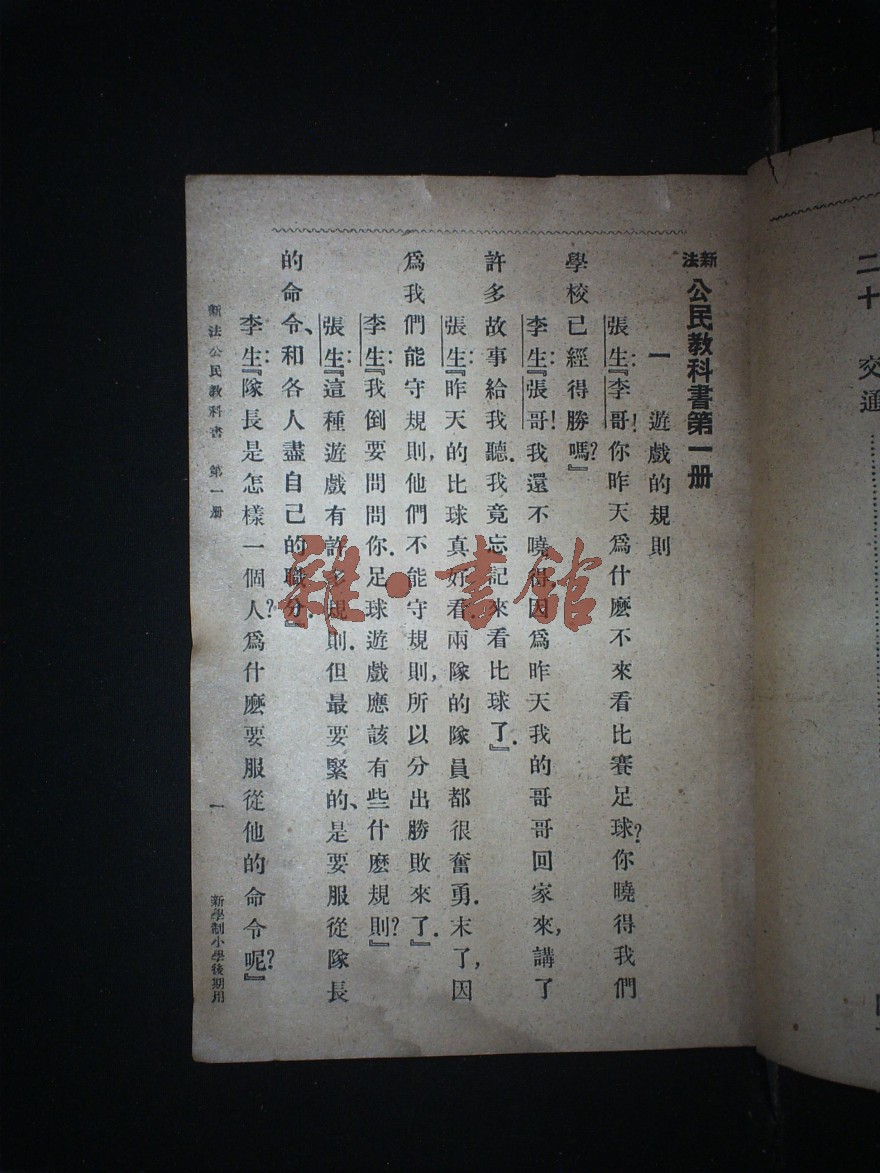 二十 交通
新法公民教科書第一册
一 遊戲的規則
張生:『李哥!你昨天爲什麽不來看比賽足球?你曉得我們
學校已經得勝嗎?』
李生:『張哥!我還不曉得,因爲昨天我的哥哥回家來,講了
許多故事給我聽.我竟忘記來看比球了.』
張生:『昨天的比球真好看.兩隊的隊員都很奮勇.末了,因
爲我們能守規則,他們不能守規則,所以分出勝敗來了.』
李生:『我倒要問問你.足球遊戲應該有些什麽規則?』
張生:『這種遊戲有許多規則.但最要緊的、是要服從隊長
的命令、和各人盡自己的職分.』
李生:『隊長是怎樣一個人?爲什麽要服從他的命令呢?』
新法公民教科書 第一册 一 新學制小學後期用
雜·書館